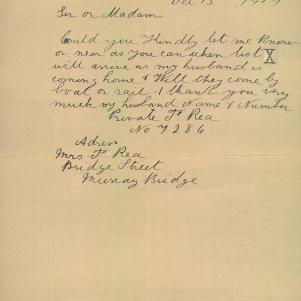 Dec 15 1919
Sir or Madam
Could you Kindly let me Know
or near as you can when list X
will arrive as my husband is
coming home & Will they come by
boat or rail. I thank you very
much my husband Name & Number
Private F Rea
No 7286
Adress
Mrs F Rea
Bridge Street
Murray Bridge